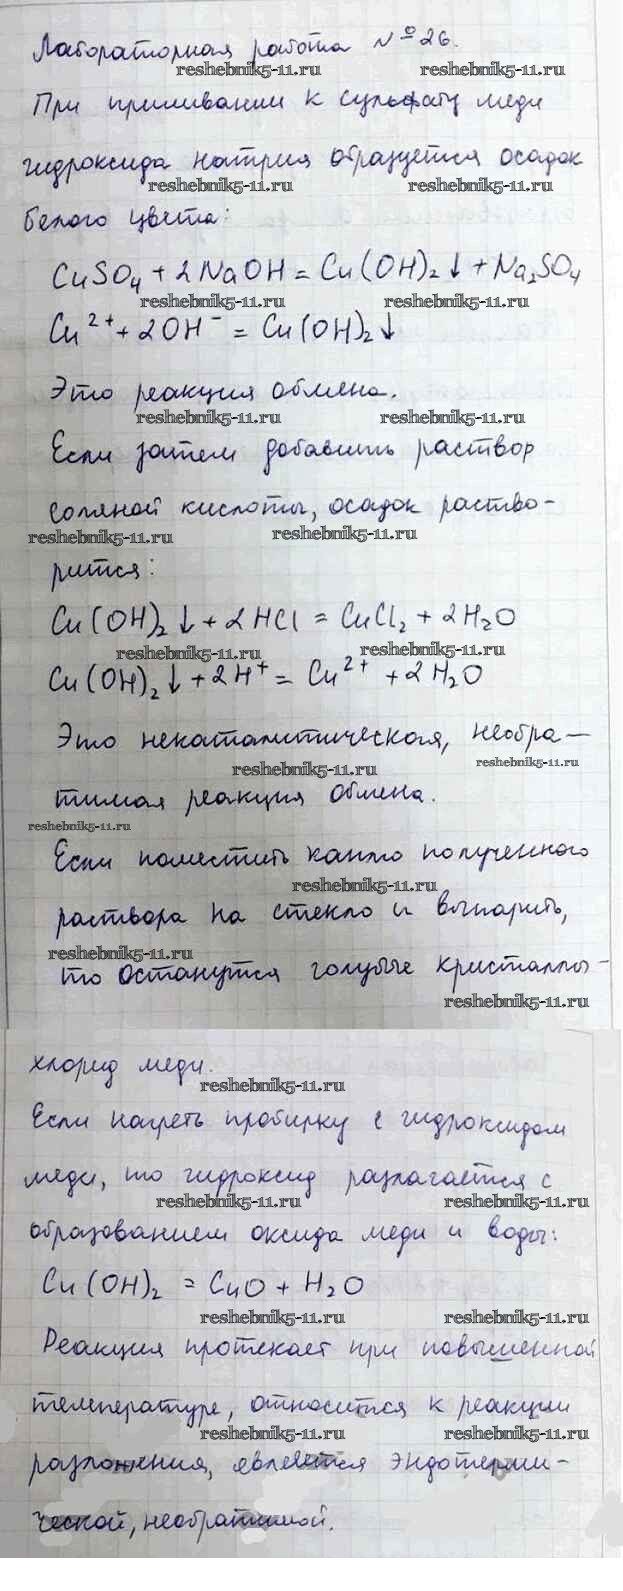 Лабораторная работа №26.
reshebnik5-11.ru reshebnik5-11.ru
При приливании к сульфату меди
гидроксида натрия образуется осадок
reshebnik5-11.ru reshebnik5-11.ru
белого цвета:
CuSO4 + 2NaOH = Cu(OH)2↓ + Na2SO4
reshebnik5-11.ru reshebnik5-11.ru
Cu²⁺ + 2OH⁻ = Cu(OH)2↓
Это реакция обмена.
reshebnik5-11.ru reshebnik5-11.ru
Если затем добавить раствор
соляной кислоты, осадок раство-
reshebnik5-11.ru reshebnik5-11.ru
рится:
Cu(OH)2↓ + 2HCl = CuCl2 + 2H2O
reshebnik5-11.ru reshebnik5-11.ru
Cu(OH)2↓ + 2H⁺ = Cu²⁺ + 2H2O
Это некаталитическая, необра-
reshebnik5-11.ru reshebnik5-11.ru
тимая реакция обмена.
reshebnik5-11.ru
Если поместить каплю полученного
reshebnik5-11.ru
раствора на стекло и выпарить,
reshebnik5-11.ru
то останутся голубые кристаллы-
reshebnik5-11.ru
хлорид меди.
reshebnik5-11.ru
Если нагреть пробирку с гидроксидом
меди, то гидроксид разлагается с
reshebnik5-11.ru reshebnik5-11.ru
образованием оксида меди и воды:
Cu(OH)2 = CuO + H2O
reshebnik5-11.ru reshebnik5-11.ru
Реакция протекает при повышенной
температуре, относится к реакции
reshebnik5-11.ru reshebnik5-11.ru
разложения, является эндотерми-
ческой, необратимой.